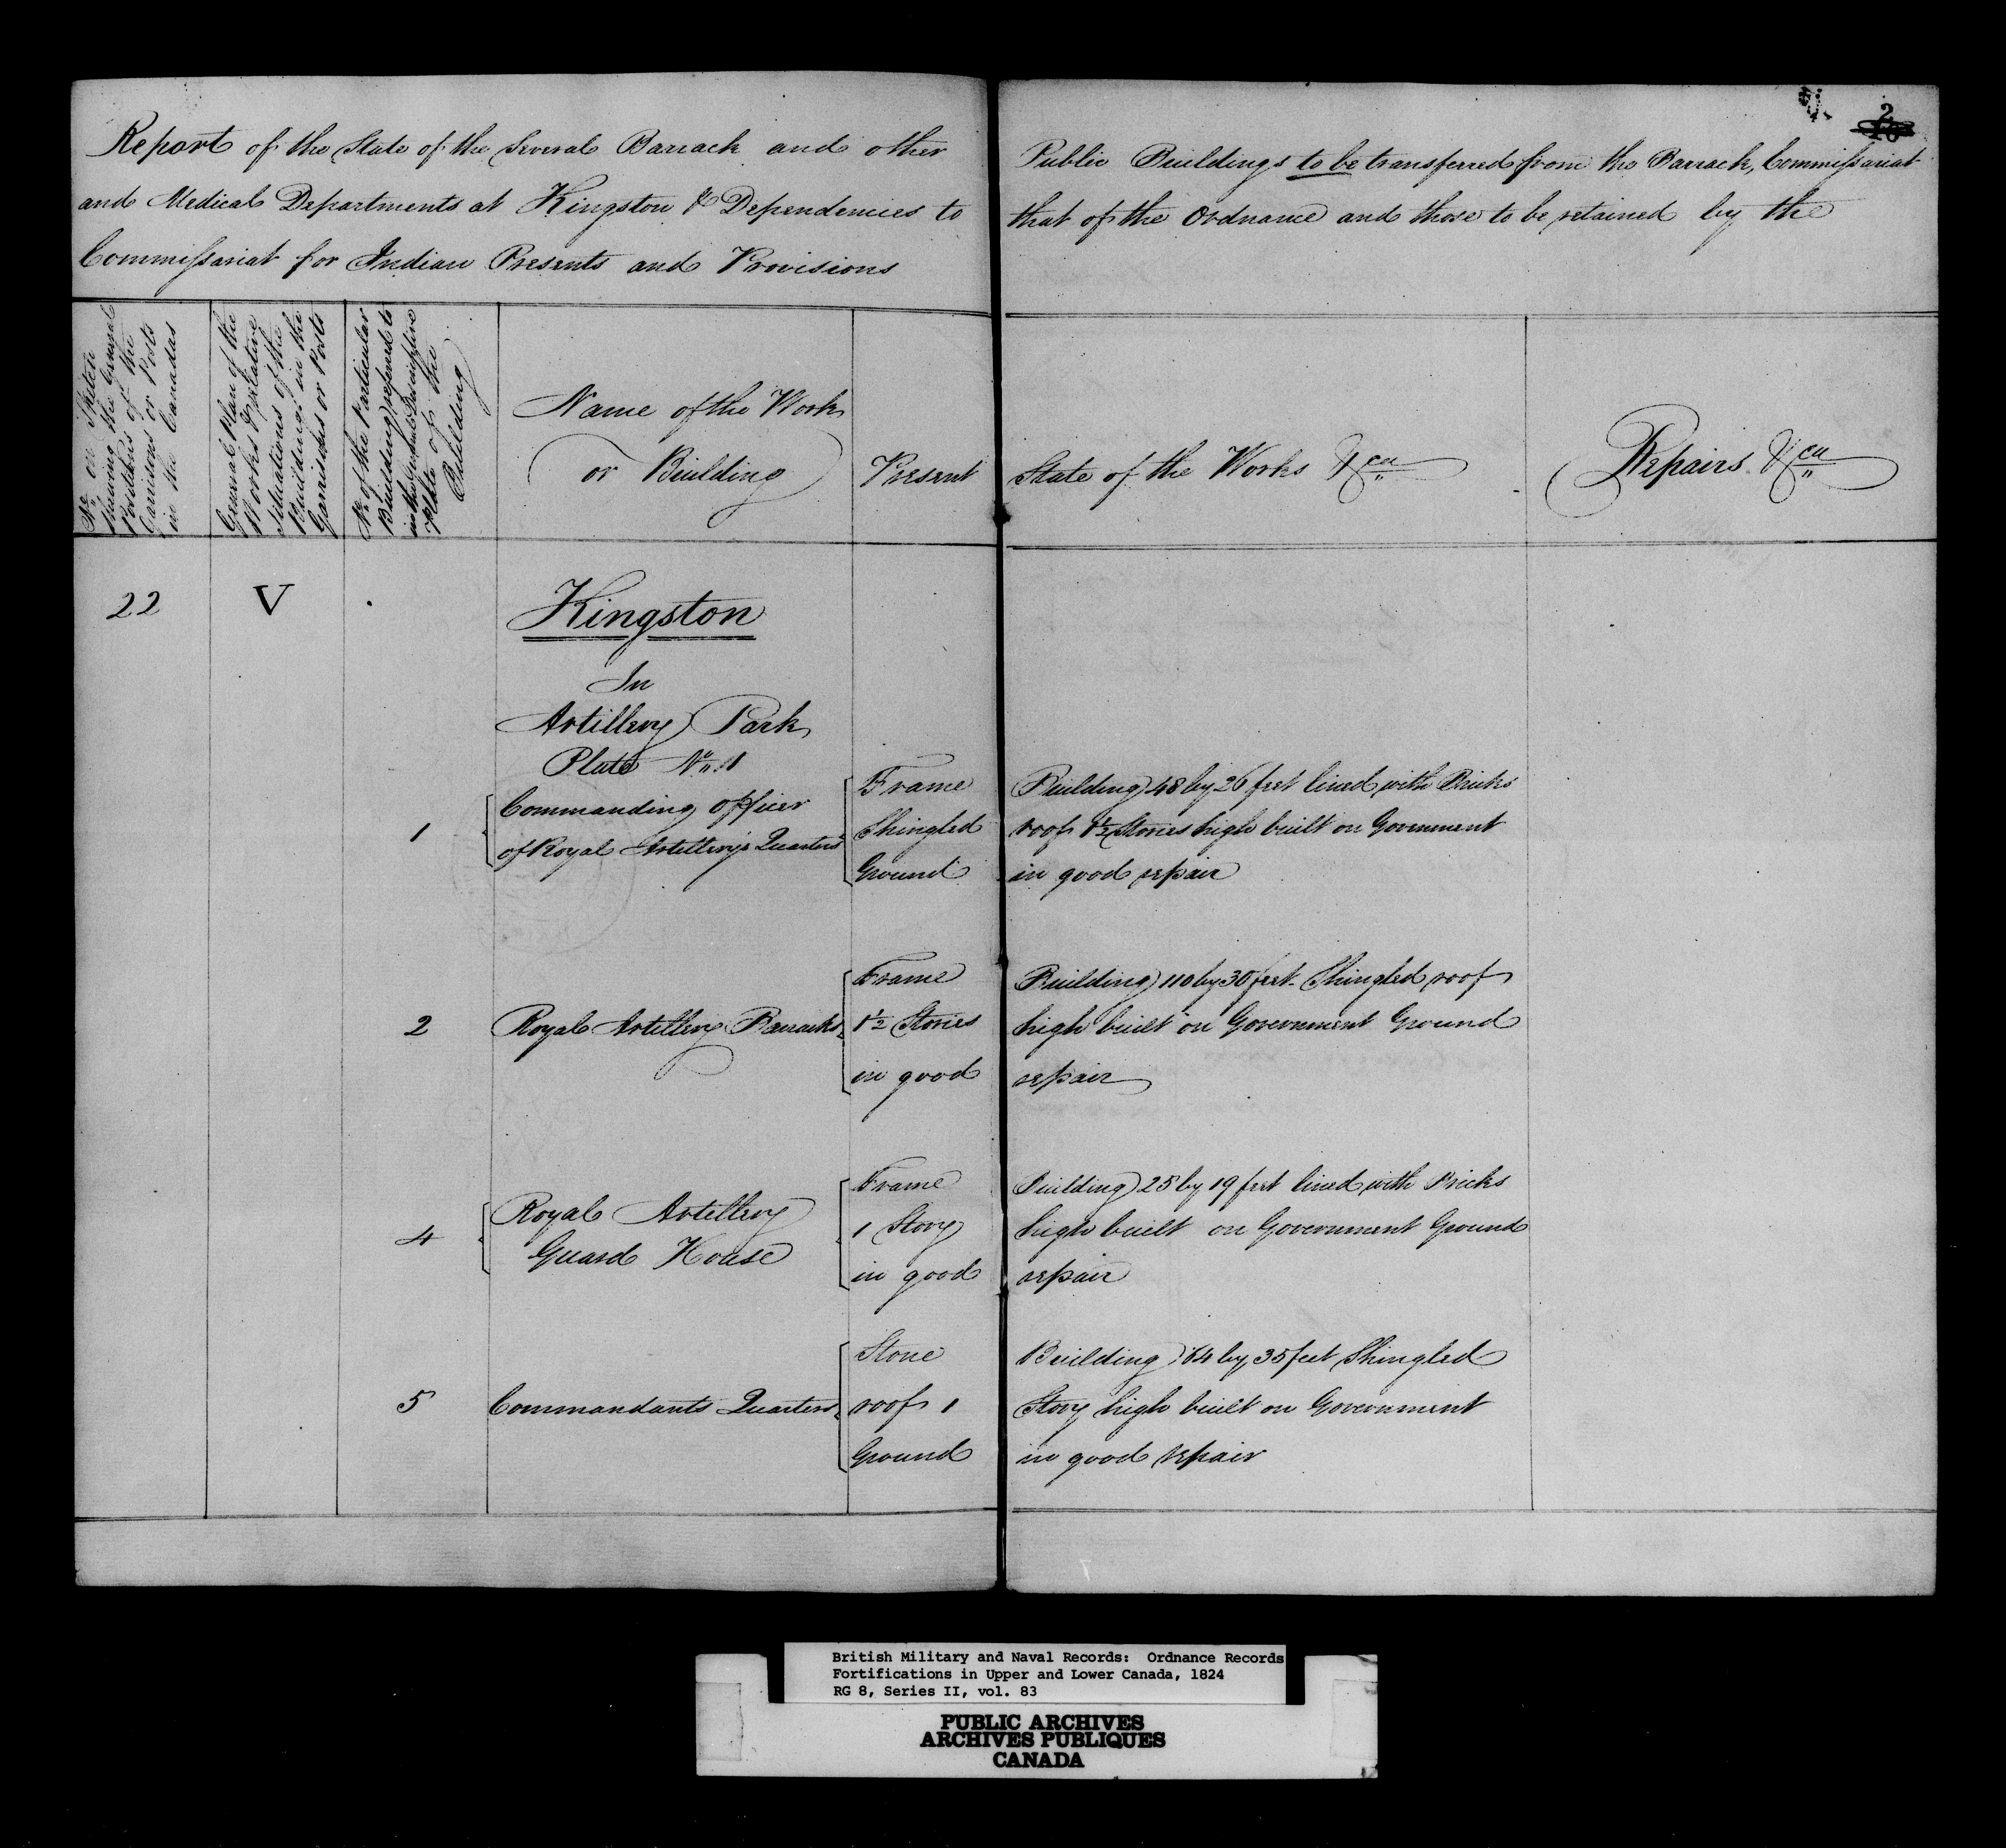 Report of the State of the Several Barrack and other Public Buildings to be transferred from the Barrack, Commissariat
and Medical Departments at Kingston & Dependencies to that of the Ordnance and those to be retained by the
Commissariat for Indian Presents and Provisions
2
No. on Sketch
shewing the General
Positions of the
Garrisons or Posts
in the Canadas
General Plan of the
Works & relative
Situations of the
Buildings in the
Garrisons or Posts
No. of the Particular
Building referred to
in the
Plate of the
Building
Name of the Work
or Building
Present State of the Works &ca
Repairs &ca
22 V
Kingston
In
Artillery Park
Plate No. 1
1 Commanding Officer
of Royal Artillery's Quarters
Frame Building 48 by 26 feet lined with Bricks
Shingled roof 1½ Stories high built on Government
Ground in good repair
2 Royal Artillery Barracks
Frame Building 110 by 30 feet Shingled roof
1½ Stories high built on Government Ground
in good repair
4 Royal Artillery
Guard House
Frame Building 25 by 19 feet lined with Bricks
1 Story high built on Government Ground
in good repair
5 Commandants Quarters
Stone Building 64 by 35 feet Shingled
roof 1 Story high built on Government
Ground in good repair
British Military and Naval Records: Ordnance Records
Fortifications in Upper and Lower Canada, 1824
RG 8, Series II, vol. 83
PUBLIC ARCHIVES
ARCHIVES PUBLIQUES
CANADA